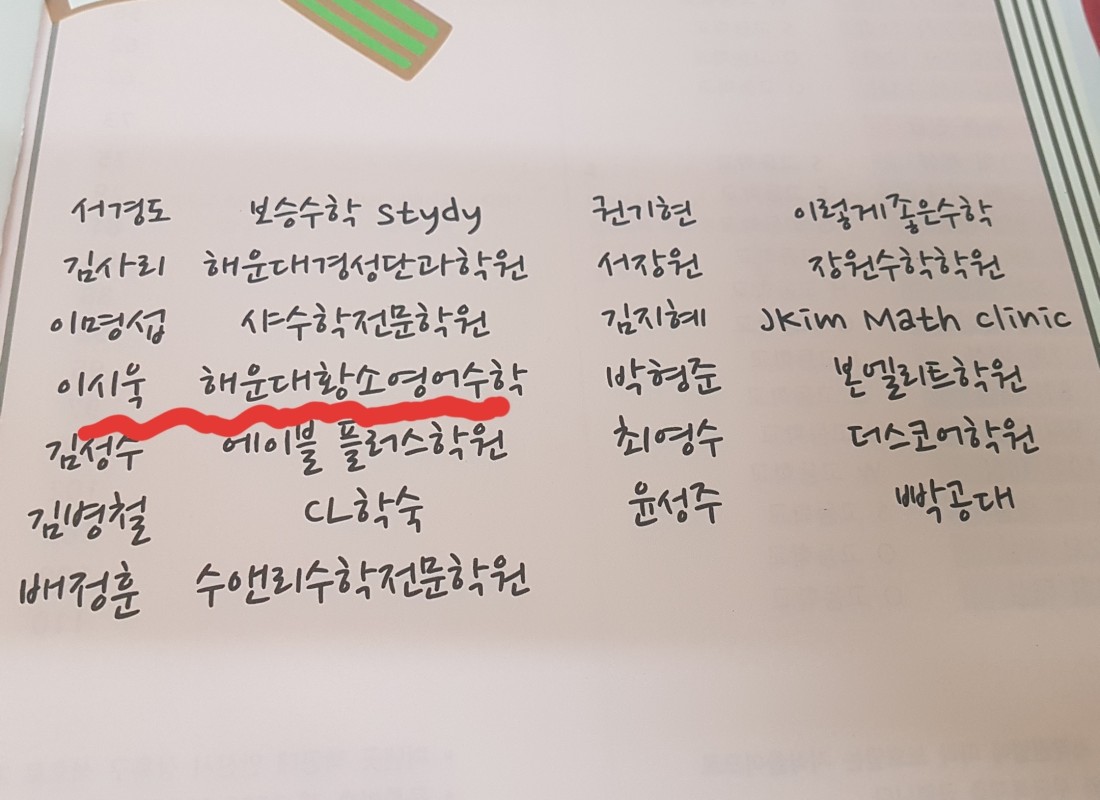 서경도 보승수학 stydy
김사리 해운대경성단과학원
이명섭 샤수학전문학원
이시욱 해운대황소영어수학
김성수 에이블 플러스학원
김병철 CL학숙
배정훈 수앤리수학전문학원
권기현 이렇게좋은수학
서장원 장원수학학원
김지혜 JKim Math clinic
박형준 본엘리트학원
최영수 더스코어학원
윤성주 빡공대